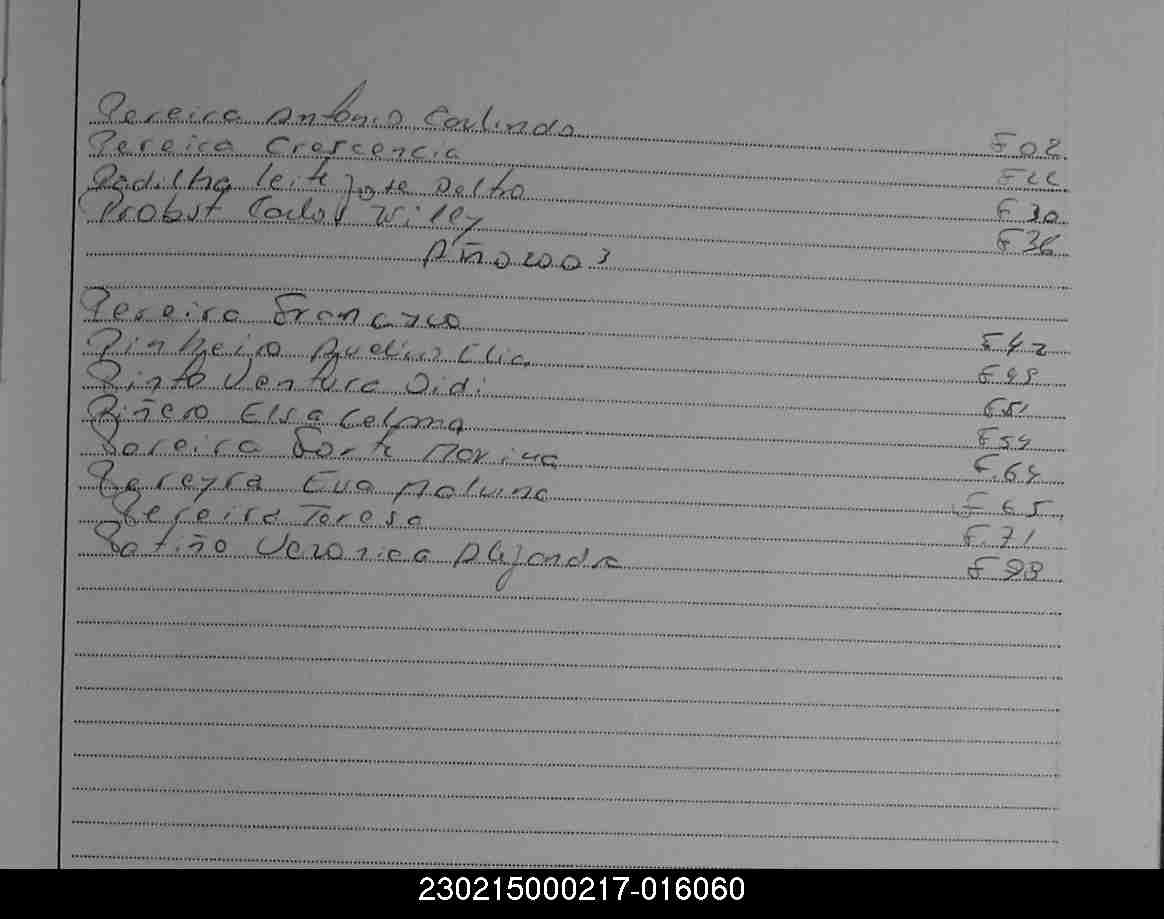 Pereira Antonio Carlindo F 02
Pereira Crescencia F 22
Padilha Leite Jorge Delho F 30
Probst Carlos Wiley F 36
Año 2003
Pereira Francisco F 42
Pinheiro Avelino Elio F 49
Pinto Ventura Didi F 51
Piñero Elsa Celma F 54
Pereira Fort Marina F. 64
Pereyra Eva Malvina F 65
Pereira Teresa F. 71
Patiño Veronica Alejandra F 98
230215000217-016060